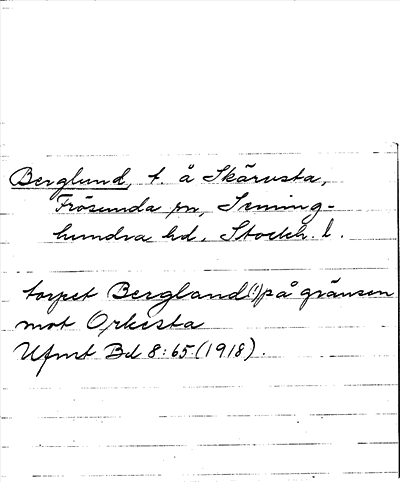 Berglund, t. å Skärusta,
Frösunda sn, Seming-
hundra hd, Stockh. l.
torpet Bergland(!) på gränsen
mot Orkesta
Ufmt Bd 8:65 (1918).